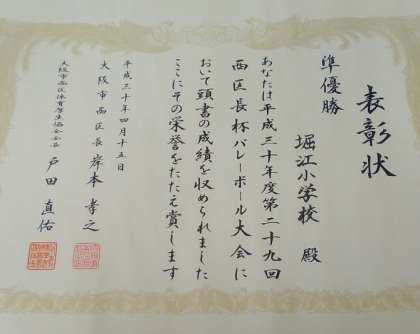 表彰状
準優勝
堀江小学校 殿
あなたは平成三十年度第二十九回
西区長杯バレーボール大会に
おいて頭書の成績を収められました
ここにその栄誉をたたえ賞します
平成三十年四月十五日
大阪市西区長 岸本孝之
大阪市西区体育厚生協会会長 戸田直佑